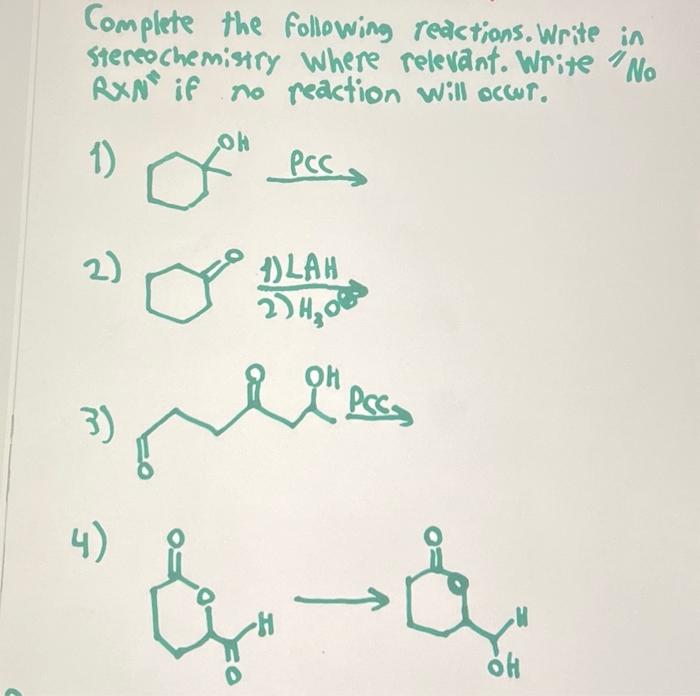 Complete the following reactions. Write in
stereochemistry where relevant. Write "No
RXN" if no reaction will occur.
1) OH PCC
2) O 1) LAH
2) H3O⊕
3) O O OH PCC
4) O O H O O O H OH